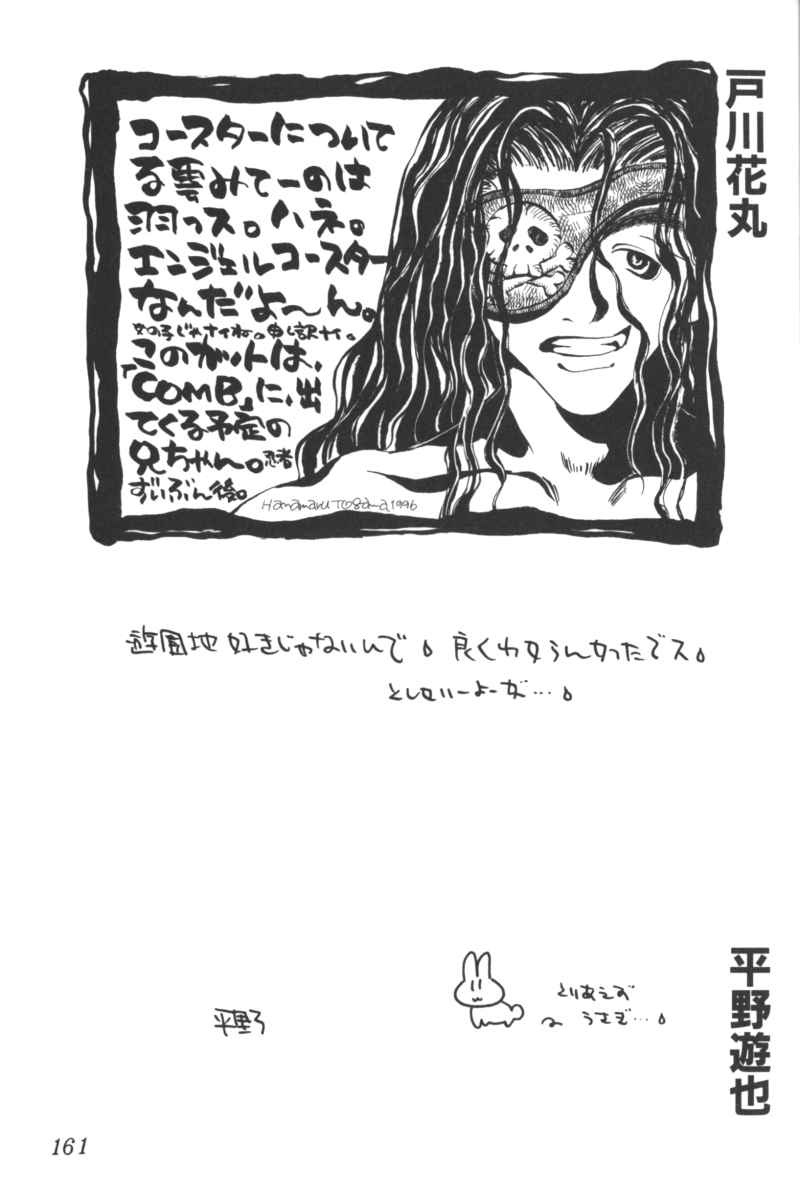 戸川花丸
コースターについて
る雲みてーのは
羽っス。ハネ。
エンジェルコースター
なんだよ〜ん。
女の子じゃなくてね。申し訳ナイ。
このカットは、
「COMB」に、出
てくる予定の
兄ちゃん。忍者
ずいぶん後。
Hanamaru Togawa, 1996
遊園地好きじゃないんで。良くわかんなかったでス。
平野遊也
とりあえず
うさぎ…。
平野
161